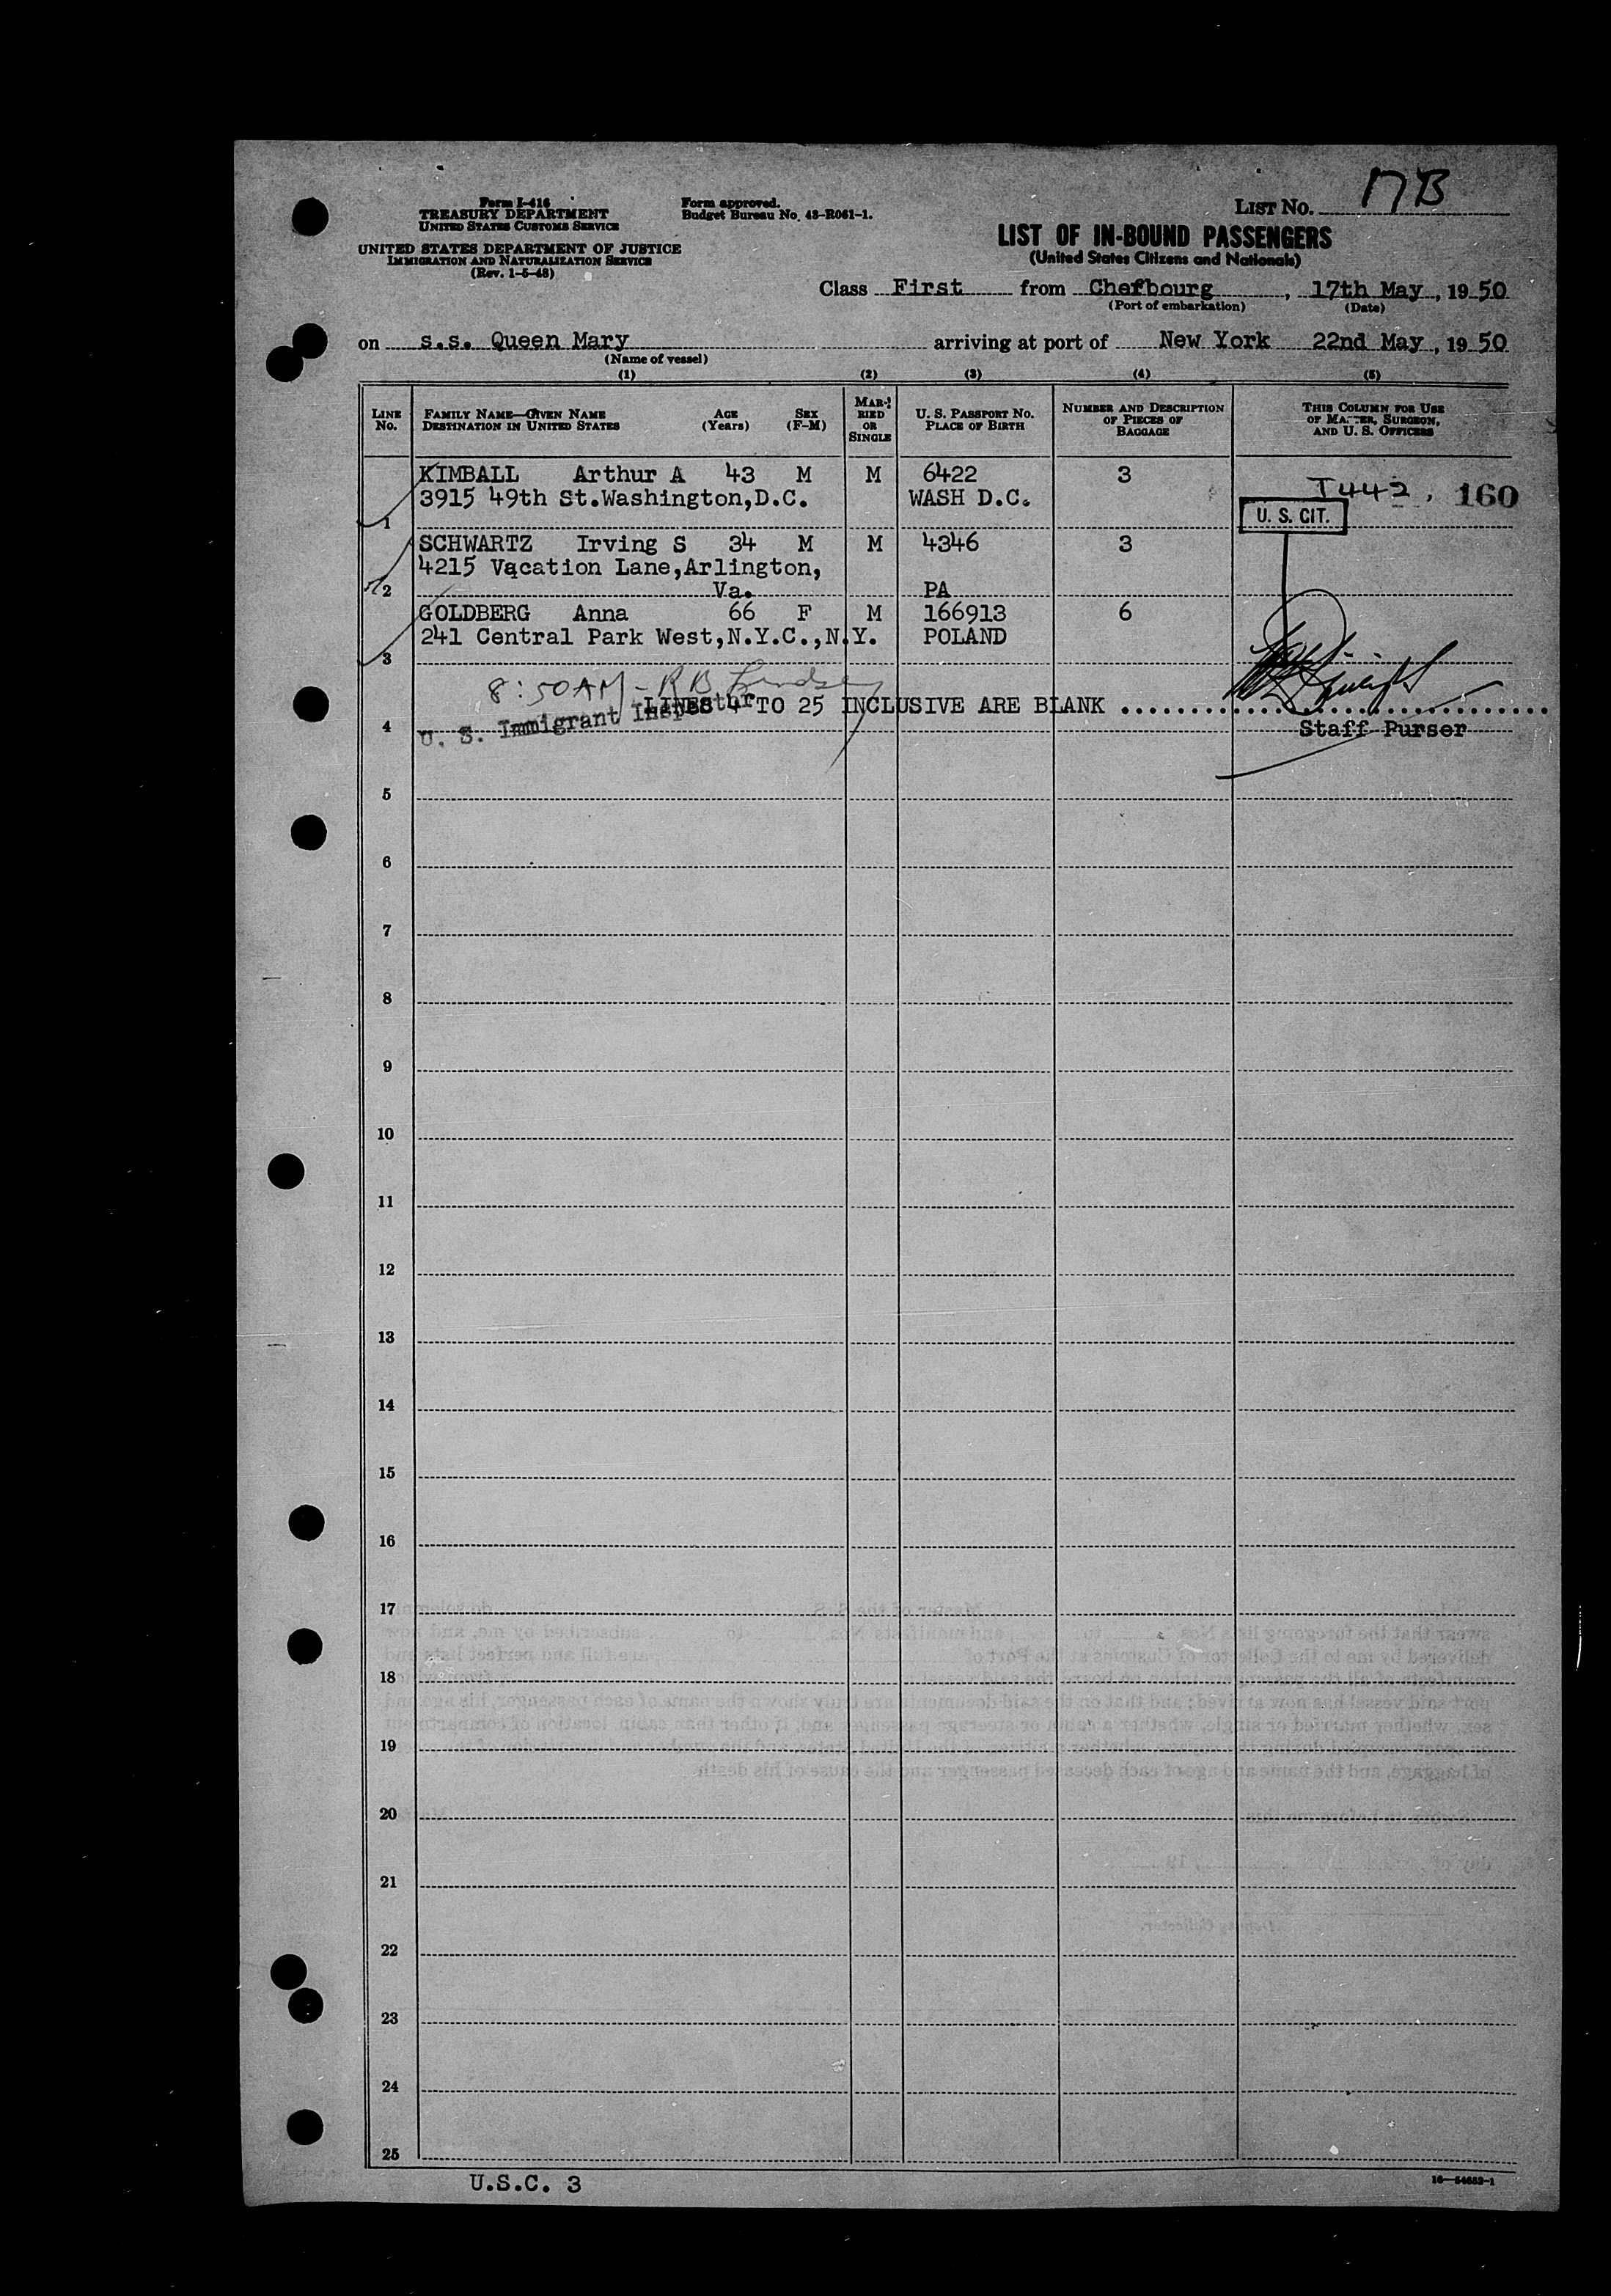 Form I-416
TREASURY DEPARTMENT
UNITED STATES CUSTOMS SERVICE
UNITED STATES DEPARTMENT OF JUSTICE
IMMIGRATION AND NATURALIZATION SERVICE
(Rev. 1-5-48)
Form approved.
Budget Bureau No. 43-R061-1.
LIST No. 17B
LIST OF IN-BOUND PASSENGERS
(United States Citizens and Nationals)
Class First from Cherbourg, 17th May, 19 50
(Port of embarkation) (Date)
on s.s. Queen Mary arriving at port of New York 22nd May, 19 50
(Name of vessel)
(1) (2) (3) (4) (5)
LINE No. FAMILY NAME—GIVEN NAME DESTINATION IN UNITED STATES AGE (Years) SEX (F-M) MARRIED OR SINGLE U. S. PASSPORT NO. PLACE OF BIRTH NUMBER AND DESCRIPTION OF PIECES OF BAGGAGE THIS COLUMN FOR USE OF MASTER, SURGEON, AND U. S. OFFICERS
KIMBALL Arthur A 43 M M 6422 3
3915 49th St.Washington,D.C. WASH D.C. T442, 160
1 U. S. CIT.
SCHWARTZ Irving S 34 M M 4346 3
4215 Vacation Lane,Arlington,
2 Va. PA
GOLDBERG Anna 66 F M 166913 6
241 Central Park West,N.Y.C.,N.Y. POLAND
3
8:50AM - R B Lindsey
LINES 4 TO 25 INCLUSIVE ARE BLANK
U. S. Immigrant Inspector
4 Staff Purser
5
6
7
8
9
10
11
12
13
14
15
16
17
18
19
20
21
22
23
24
25
U.S.C. 3